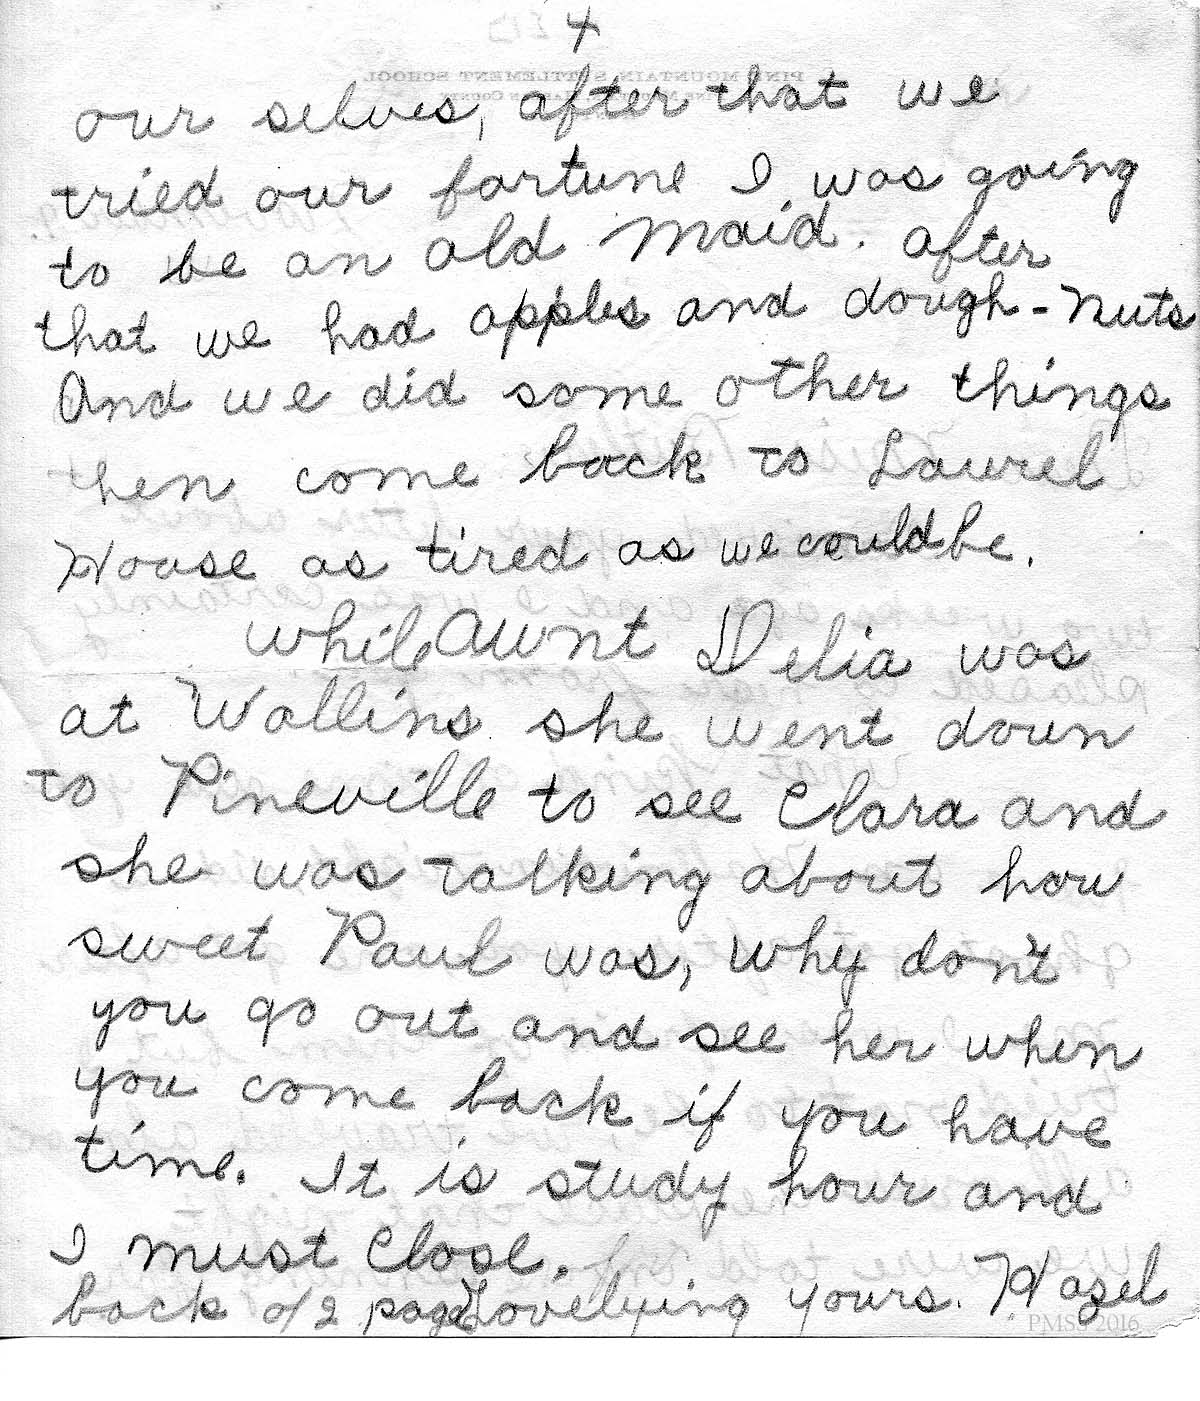 4
PINE MOUNTAIN SETTLEMENT SCHOOL
our selves, after that we
tried our fortune I was going
to be an old maid. after
that we had apples and dough-nuts
And we did some other things
then come back to Laurel
House as tired as we could be.
while Aunt Delia was
at Wallins she went down
to Pineville to see Clara and
she was talking about how
sweet Paul was, why don't
you go out and see her when
you come back if you have
time. It is study hour and
I must close.
back of 2 page Lovelying yours. Hazel
PMSS 2016